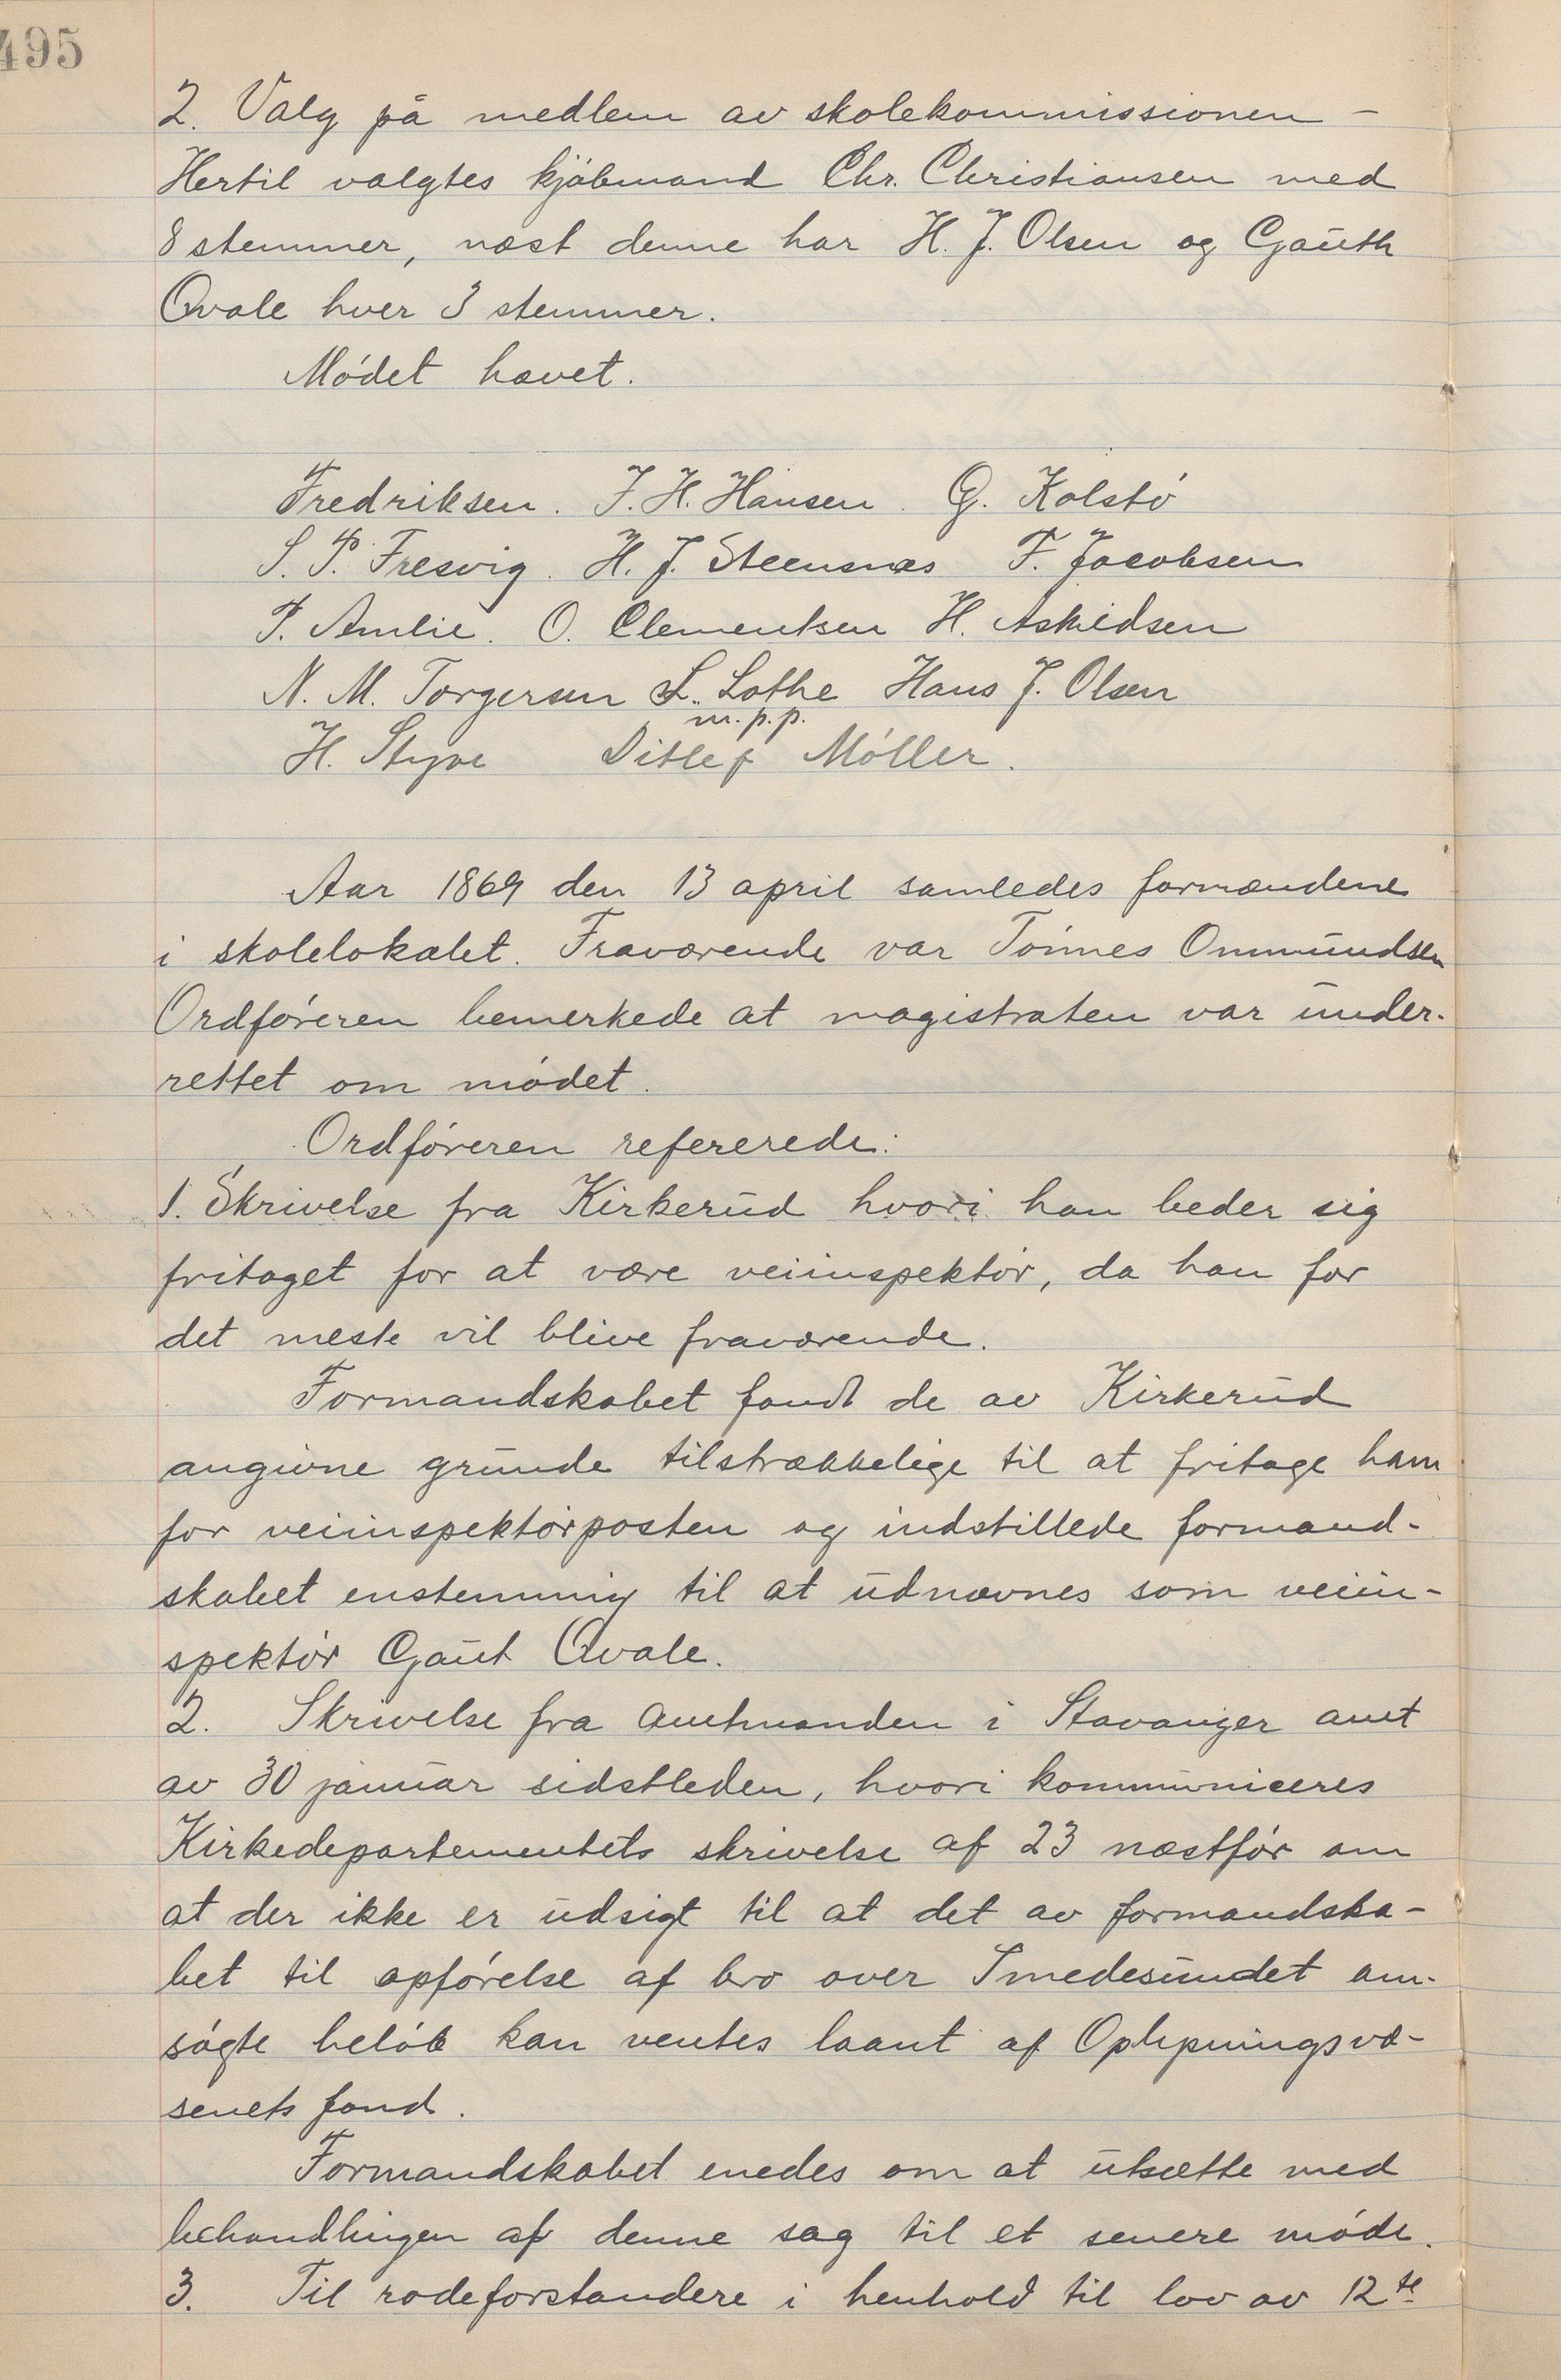 495
2. Valg på medlem av skolekommissionen –
Hertil valgtes kjøbmand Chr. Christiansen med
8 stemmer, næst denne har H. J. Olsen og Gauth
Qvale hver 3 stemmer.
Mødet hævet.
Fredriksen. J. H. Hansen. G. Kolstø
S. P. Fresvig. H. J. Steensnæs F. Jacobsen
P. Amlie. O. Clementsen H. Askildsen
N. M. Torgersen L. Lothe Hans J. Olsen
m.p.p.
H. Styve Ditlef Møller.
Aar 1869 den 13 april samledes formændene
i skolelokalet. Fraværende var Tönnes Ommundsen
Ordføreren bemerkede at magistraten var under-
rettet om mødet.
Ordføreren refererede:
1. Skrivelse fra Kirkerud hvori han beder sig
fritaget for at være veiinspektør, da han for
det meste vil blive fraværende.
Formandskabet fandt de av Kirkerud
angivne grunde tilstrækkelige til at fritage ham
for veiinspektørposten og indstillede formand-
skabet enstemmig til at udnævnes som veiin-
spektør Gaut Qvale.
2. Skrivelse fra amtmanden i Stavanger amt
av 30 januar sidstleden, hvori kommuniceres
Kirkedepartementets skrivelse af 23 næstfør om
at der ikke er udsigt til at det av formandska-
bet til opførelse af bro over Smedesundet an-
søgte beløb kan ventes laant af Oplysningsvæ-
senets fond.
Formandskabet enedes om at utsætte med
behandlingen af denne sag til et senere møde.
3. Til rodeforstandere i henhold til lov av 12te